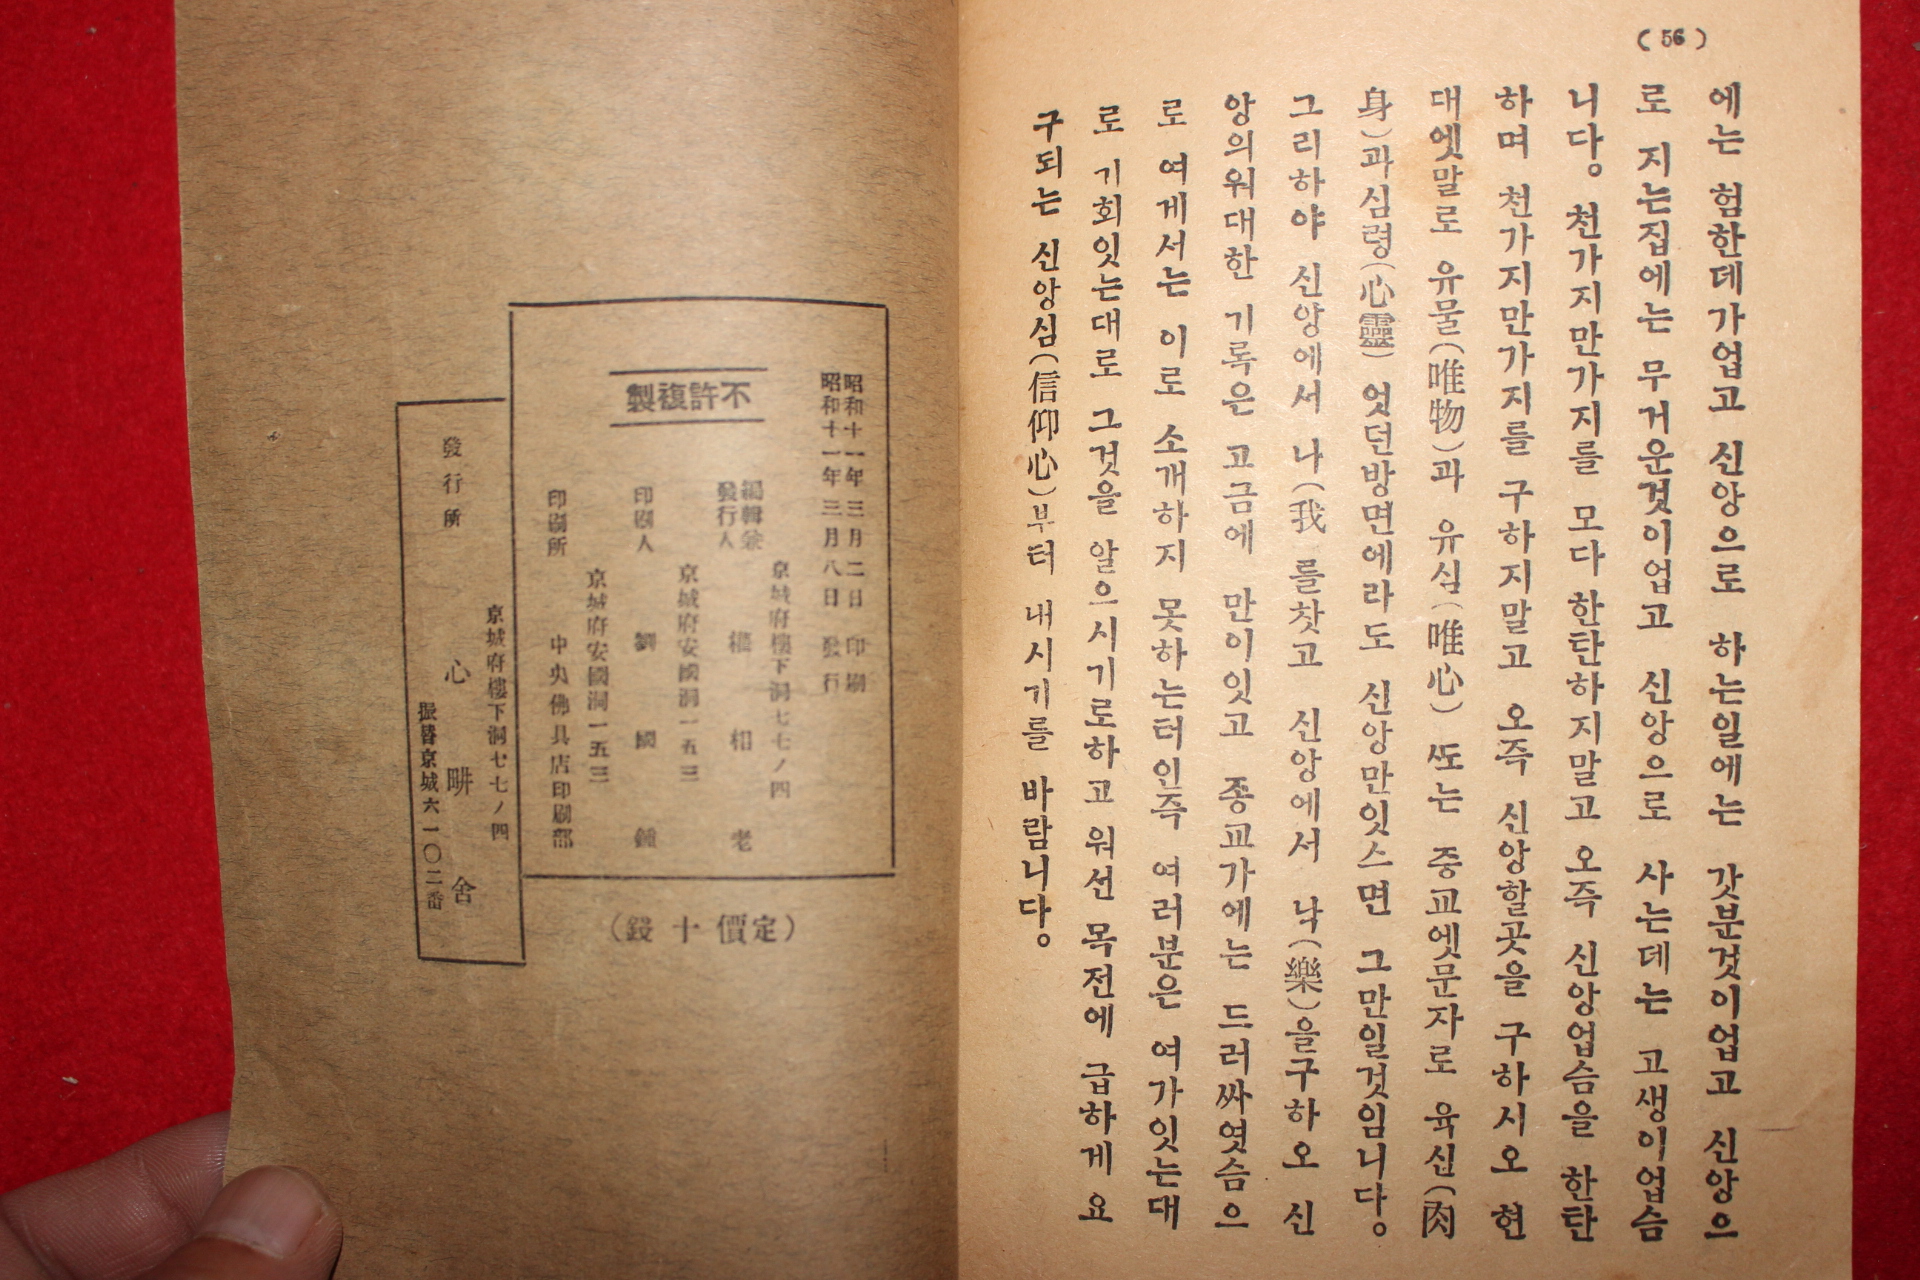 ( 56 )
에는 험한데가업고 신앙으로 하는일에는 갓분것이업고 신앙으
로 지는집에는 무거운것이업고 신앙으로 사는데는 고생이업슴
니다。 천가지만가지를 모다 한탄하지말고 오즉 신앙업슴을 한탄
하며 천가지만가지를 구하지말고 오즉 신앙할곳을 구하시오 현
대엣말로 유물(唯物)과 유심(唯心) ᄯᅩ는 종교엣문자로 육신(肉
身)과심령(心靈) 엇던방면에라도 신앙만잇스면 그만일것임니다。
그리하야 신앙에서 나(我 를찻고 신앙에서 낙(樂)을구하오 신
앙의위대한 기록은 고금에 만이잇고 종교가에는 드러싸엿슴으
로 여게서는 이로 소개하지 못하는터인즉 여러분은 여가잇는대
로 기회잇는대로 그것을 알으시기로하고 위선 목전에 급하게 요
구되는 신앙심(信仰心)부터 내시기를 바람니다。
昭和十一年三月二日 印刷
昭和十一年三月八日 發行
不許複製
京城府樓下洞七七ノ四
編輯兼
發行人 權相老
京城府安國洞一五三
印刷人 劉國鍾
京城府安國洞一五三
印刷所 中央佛具店印刷部
(定價 十 錢)
京城府樓下洞七七ノ四
發行所 心畊舍
振替京城六一〇二番